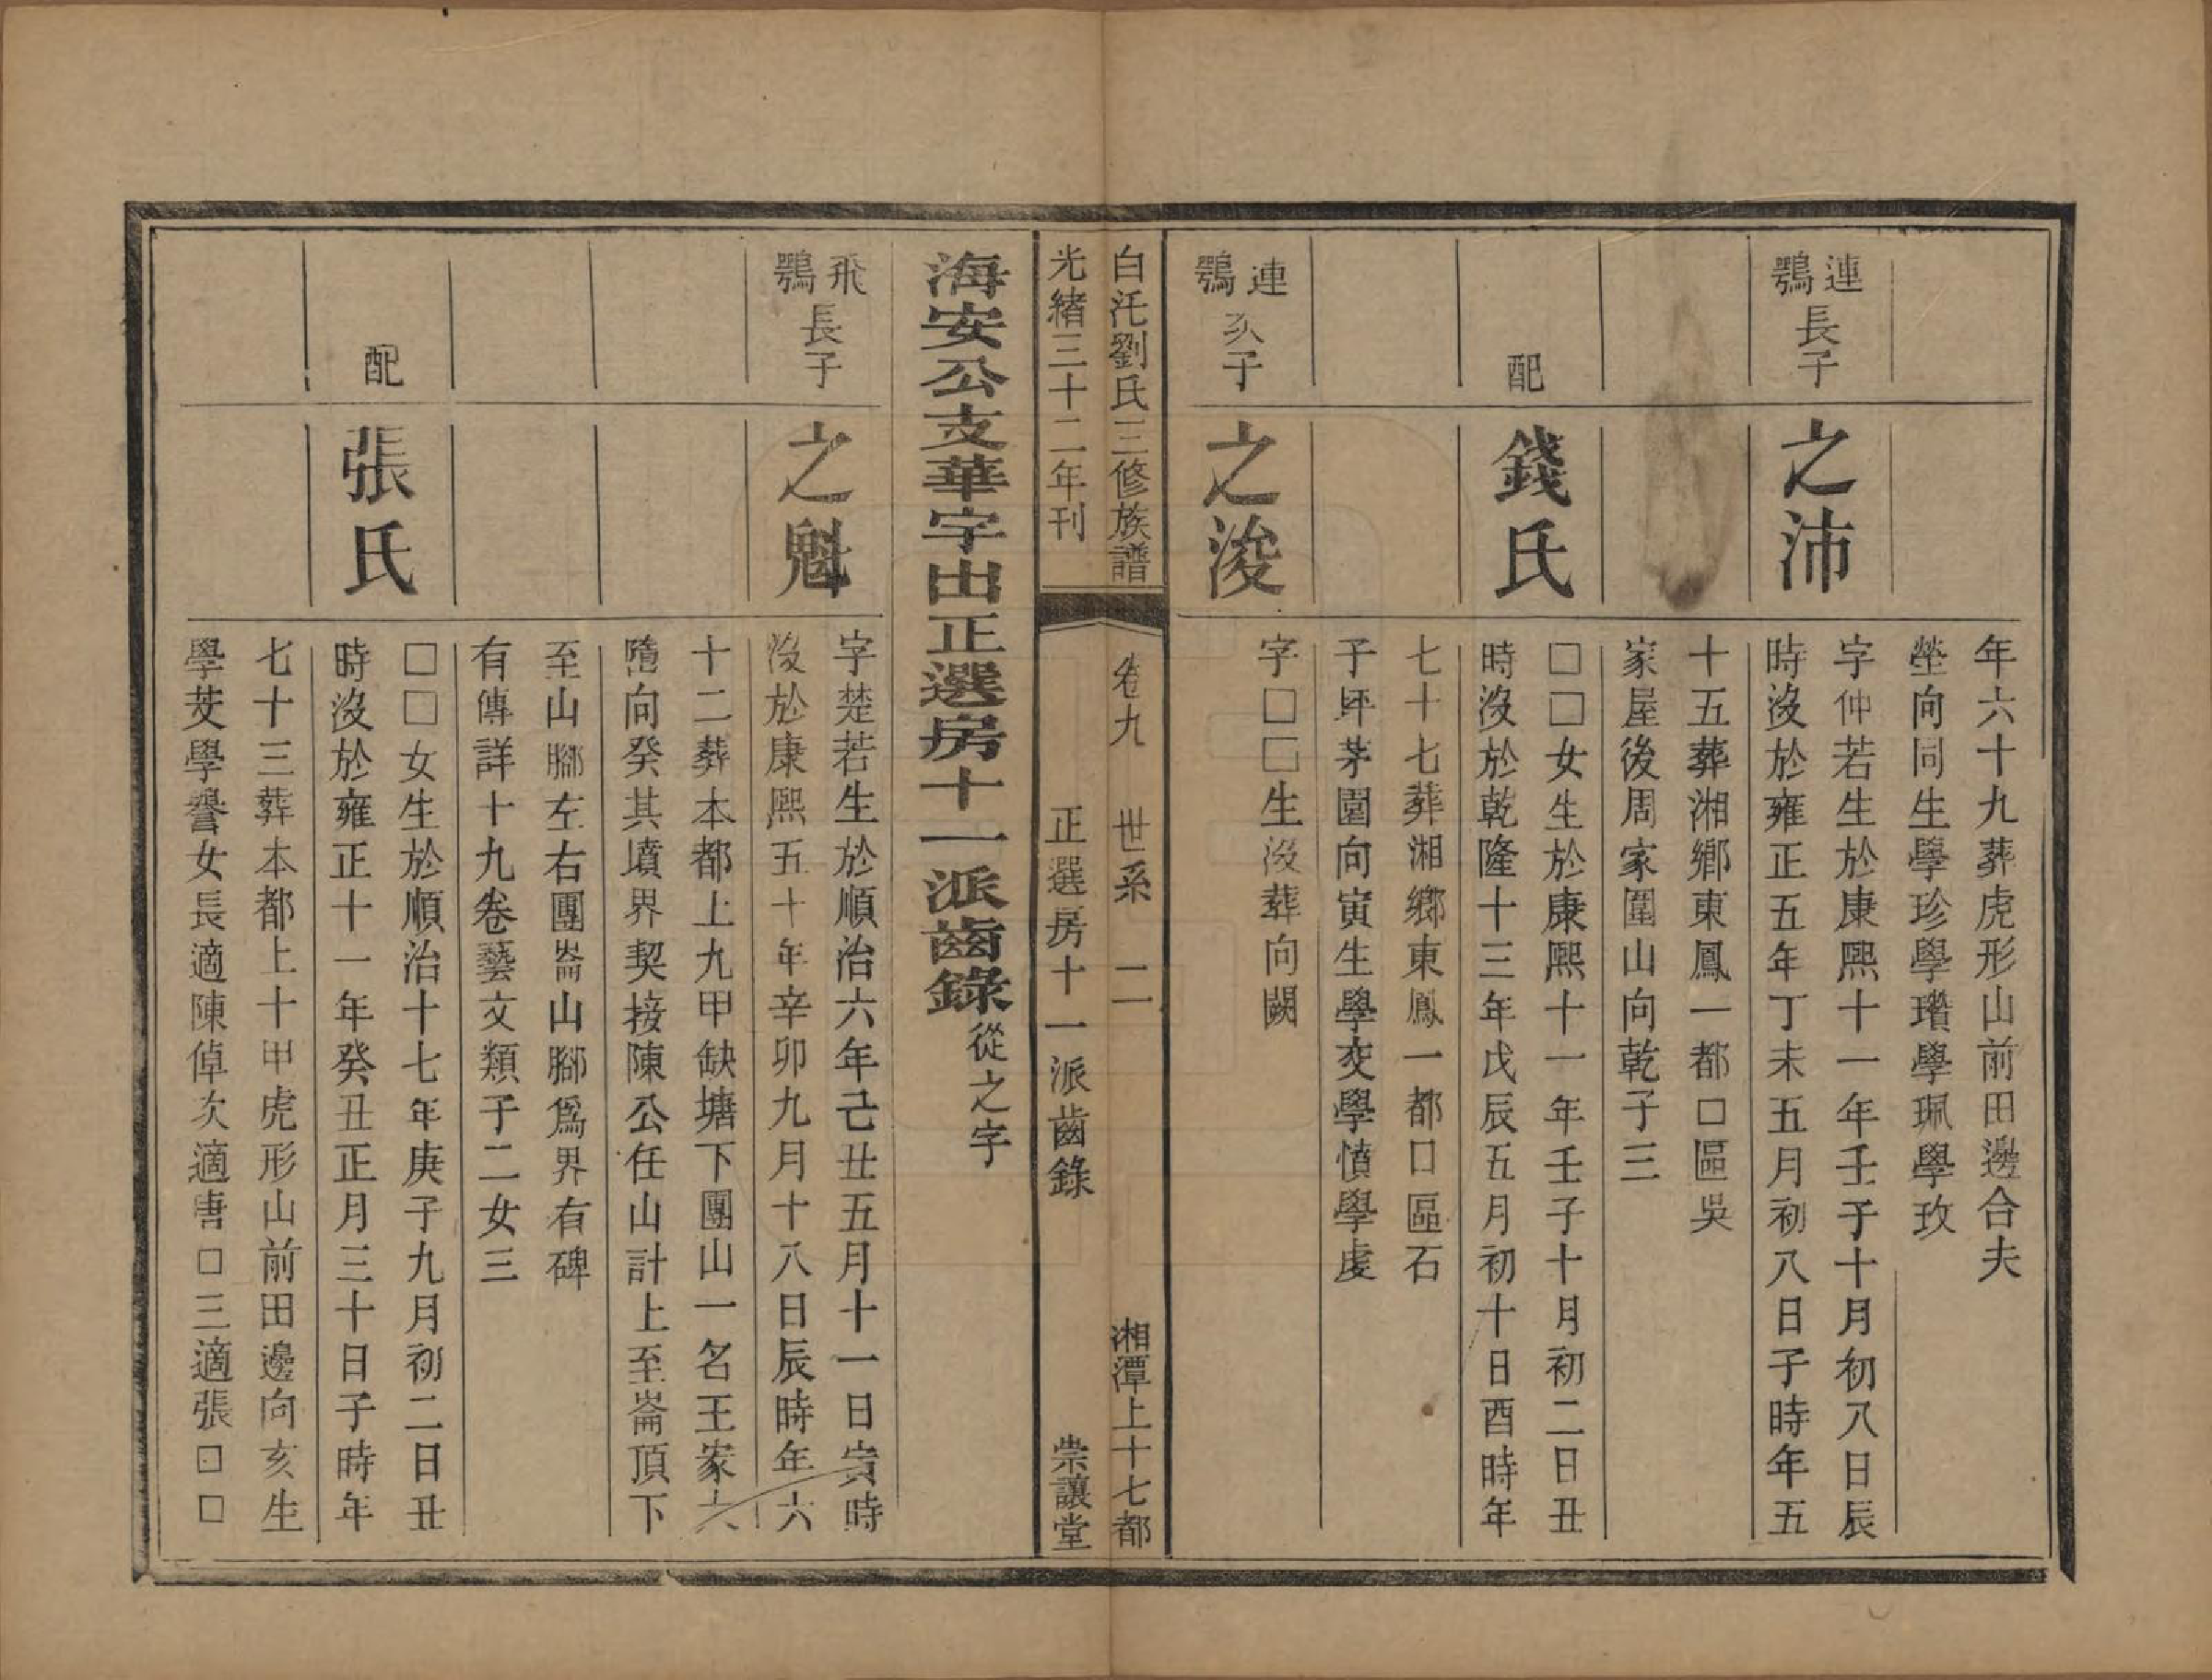 年六十九葬虎形山前田邊合夫
塋向同生學珍學瓚學珮學玫
連鶚長子
之沛
字仲若生於康熙十一年壬子十月初八日辰
時沒於雍正五年丁未五月初八日子時年五
十五葬湘鄉東鳳一都口區吳
家屋後周家圍山向乾子三
配
錢氏
□□女生於康熙十一年壬子十月初二日丑
時沒於乾隆十三年戊辰五月初十日酉時年
七十七葬湘鄉東鳳一都口區石
子坪茅園向寅生學交學憤學虔
連鶚次子
之浚
字□□生沒葬向闕
白汑劉氏三修族譜
卷九
世系
二
湘潭上十七都
光緒三十二年刊
正選房十一派齒錄
崇讓堂
海安公支華字出正選房十一派齒錄從之字
飛鶚長子
之魁
字楚若生於順治六年己丑五月十一日寅時
沒於康熙五十年辛卯九月十八日辰時年六
十二葬本都上九甲缺塘下團山一名王家六
隋向癸其墳界契接陳公任山計上至崙頂下
至山腳左右團崙山腳爲界有碑
有傳詳十九卷藝文類子二女三
配
張氏
□□女生於順治十七年庚子九月初二日丑
時沒於雍正十一年癸丑正月三十日子時年
七十三葬本都上十甲虎形山前田邊向亥生
學芨學譽女長適陳倬次適唐□三適張□□